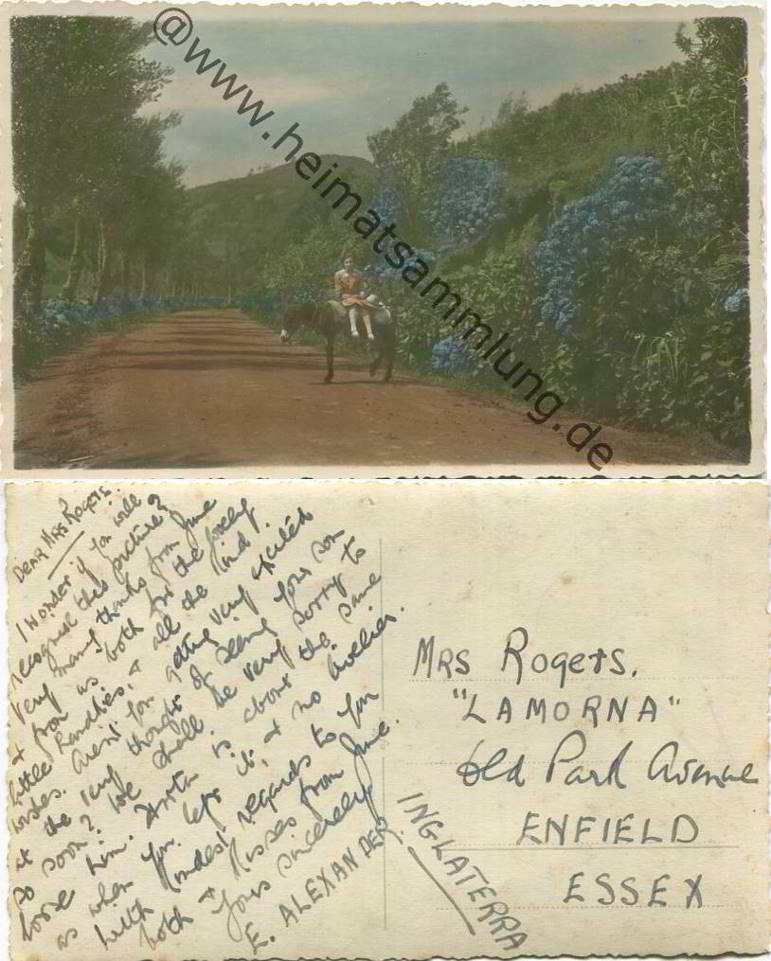 @www.heimatsammlung.de
DEAR MRS ROGERS.
I wonder if you will
recognise this picture?
Very many thanks from June
& from us both for the lovely
little handkies, & all the kind
wishes. Aren't you getting very excited
at the very thought of seeing your son
so soon? We shall be very sorry to
loose him. is about the same
as when you left it, & no livelier.
With kindest regards to you
both & kisses from June.
Yours sincerely
E. ALEXANDER.
MRS ROGERS.
"LAMORNA"
Old Park Avenue
ENFIELD
ESSEX
INGLATERRA